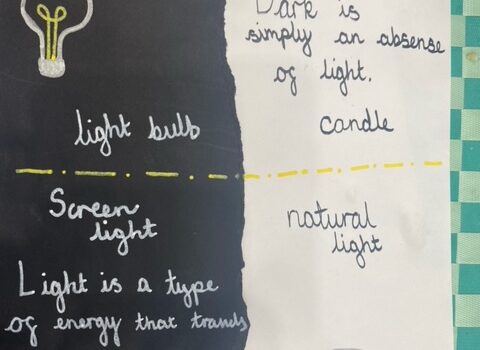 Dark is
simply an absense
of light.
light bulb
candle
Screen
light
natural
light
Light is a type
of energy that travels